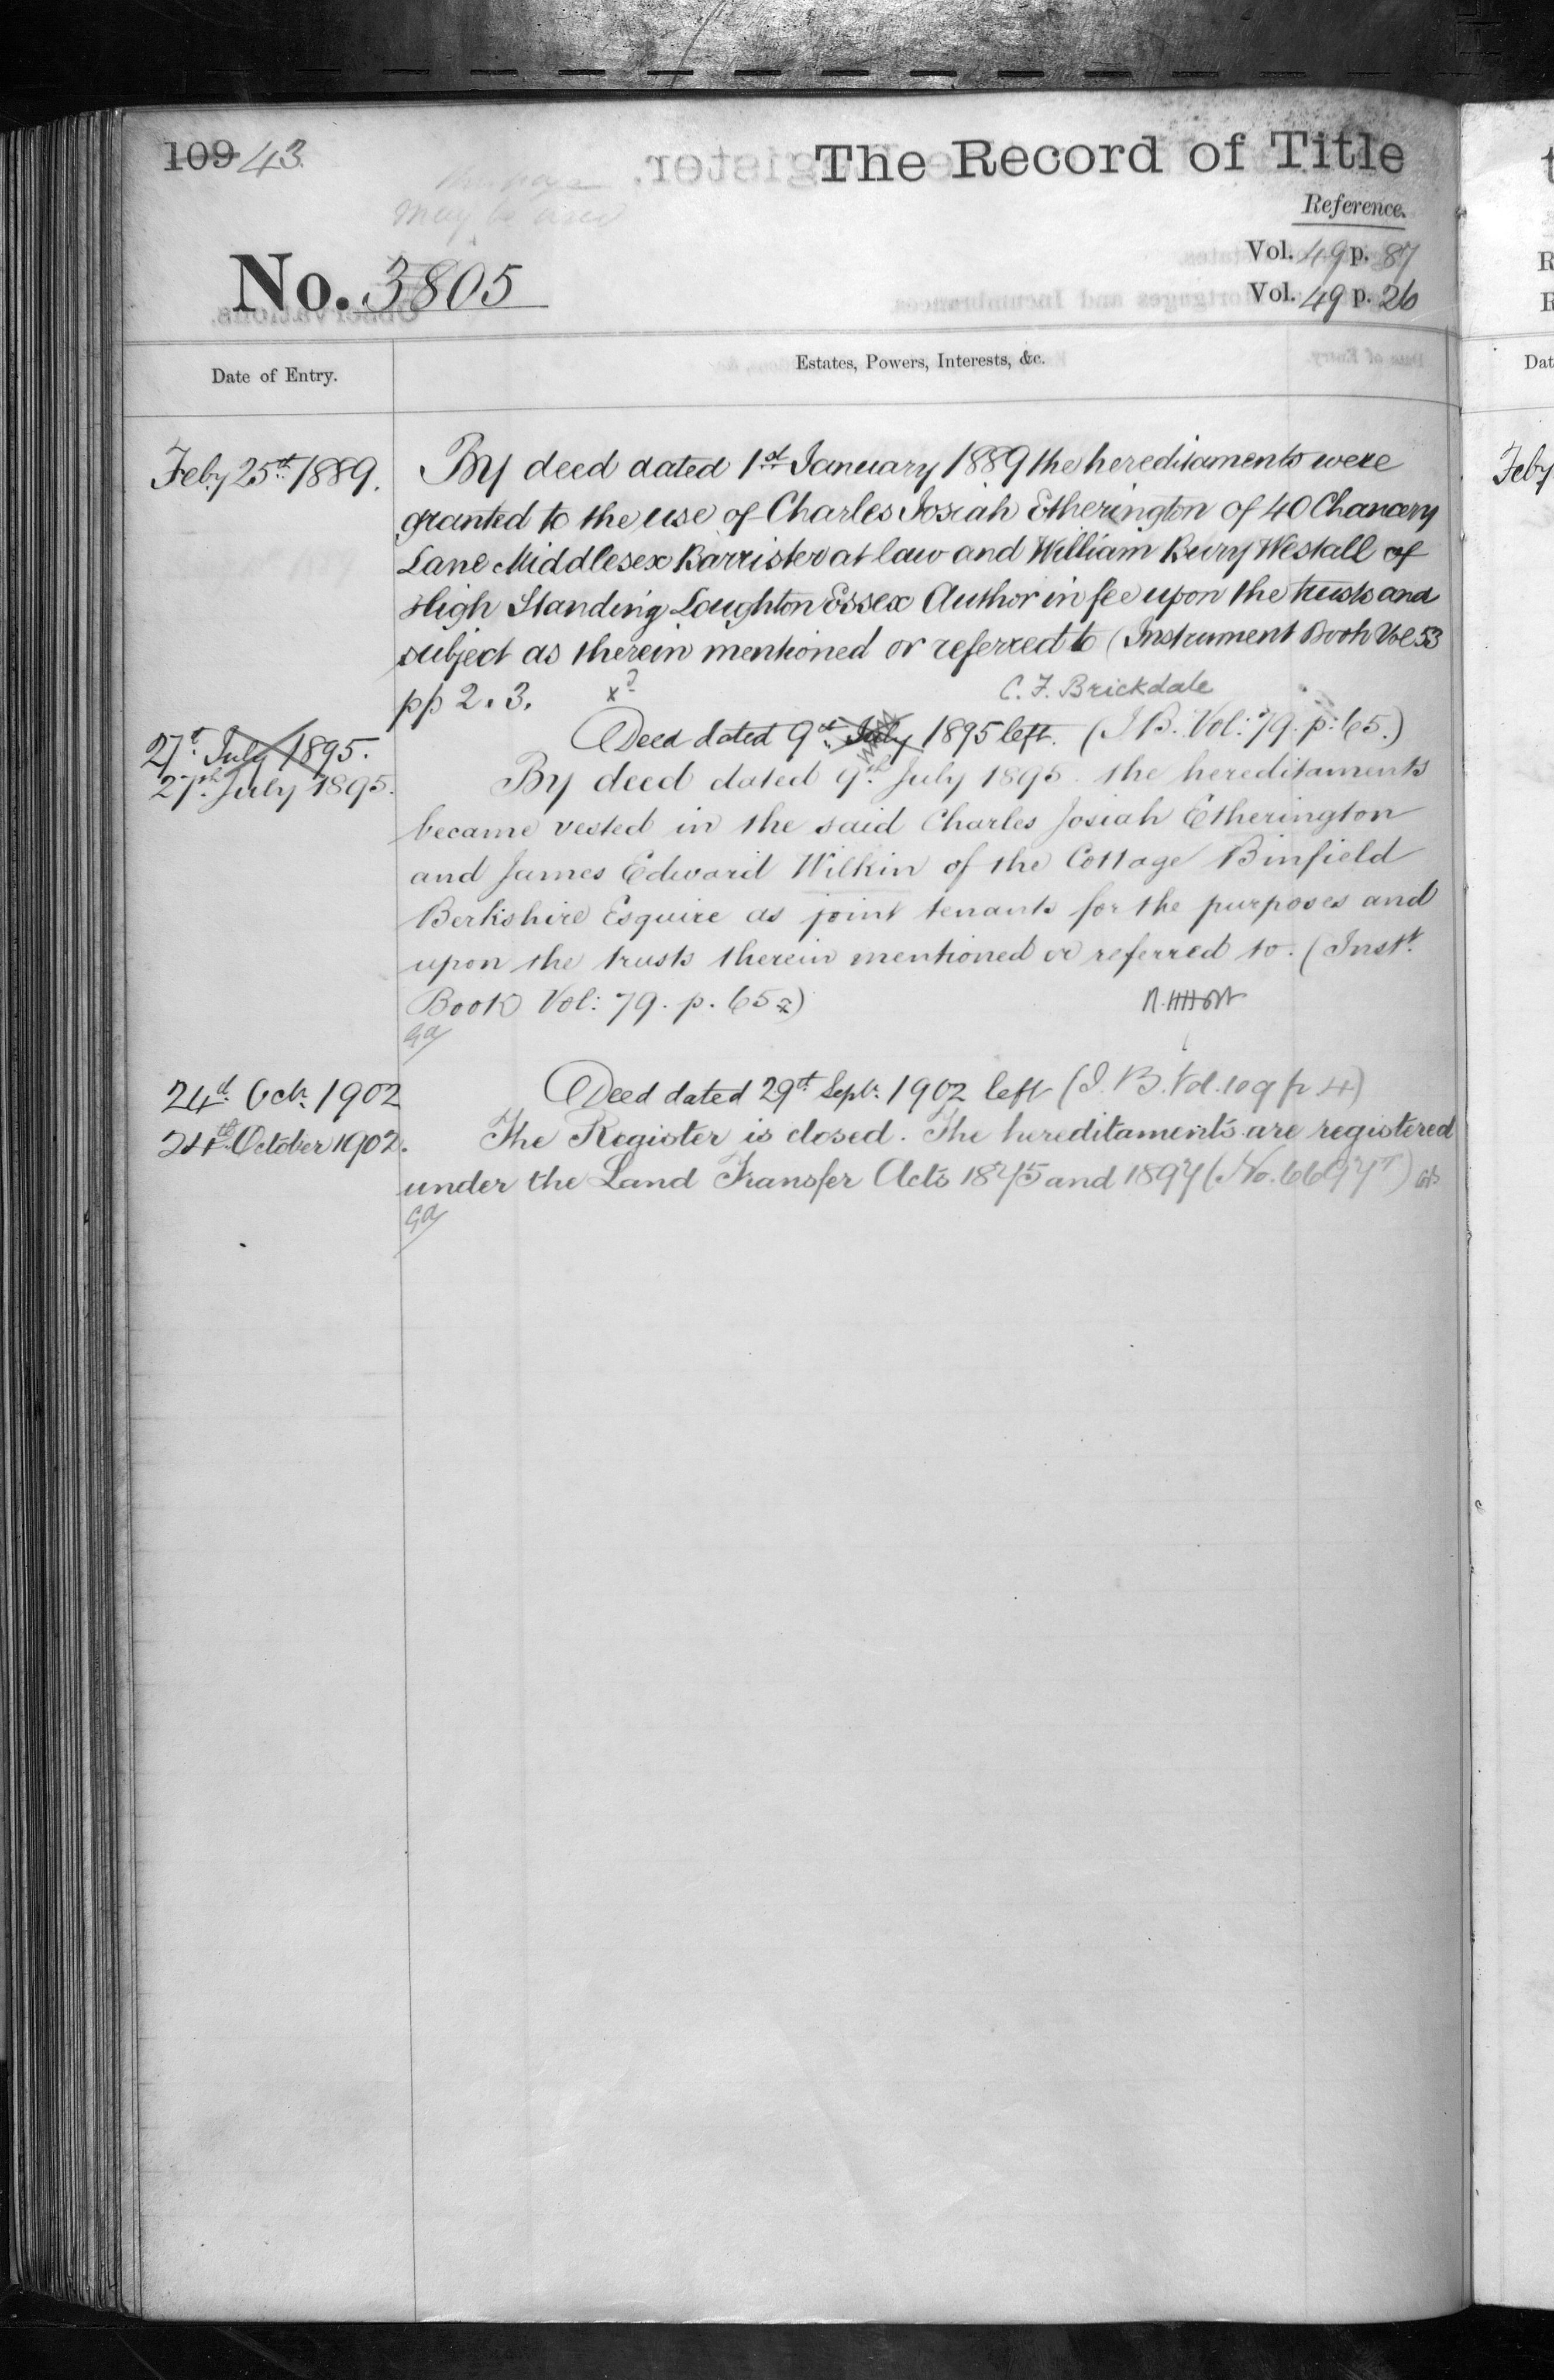 109 43.
The Record of Title
may be used
Reference.
Vol. 49 p. 87
No. 3805
Vol. 49 p. 26
Date of Entry.
Estates, Powers, Interests, &c.
Feby 25th 1889.
By deed dated 1st January 1889 the hereditaments were
granted to the use of Charles Josiah Etherington of 40 Chancery
Lane Middlesex Barrister at law and William Bury Westall of
High Standing Loughton Essex Author in fee upon the trusts and
subject as therein mentioned or referred to (Instrument Book Vol 53
pp 2. 3.
C. F. Brickdale
27th July 1895.
Deed dated 9th July 1895 left. (I. B. Vol: 79. p: 65.)
27th July 1895.
By deed dated 9th July 1895 the hereditaments
became vested in the said Charles Josiah Etherington
and James Edward Wilkin of the Cottage Binfield
Berkshire Esquire as joint tenants for the purposes and
upon the trusts therein mentioned or referred to. (Instt.
Book Vol: 79. p. 65)
24th Octr. 1902
Deed dated 29th Septr. 1902 left (I. B. Vol. 109 p. 4)
24th October 1902.
The Register is closed. The hereditaments are registered
under the Land Transfer Acts 1875 and 1897 (No. 6697)
Feby